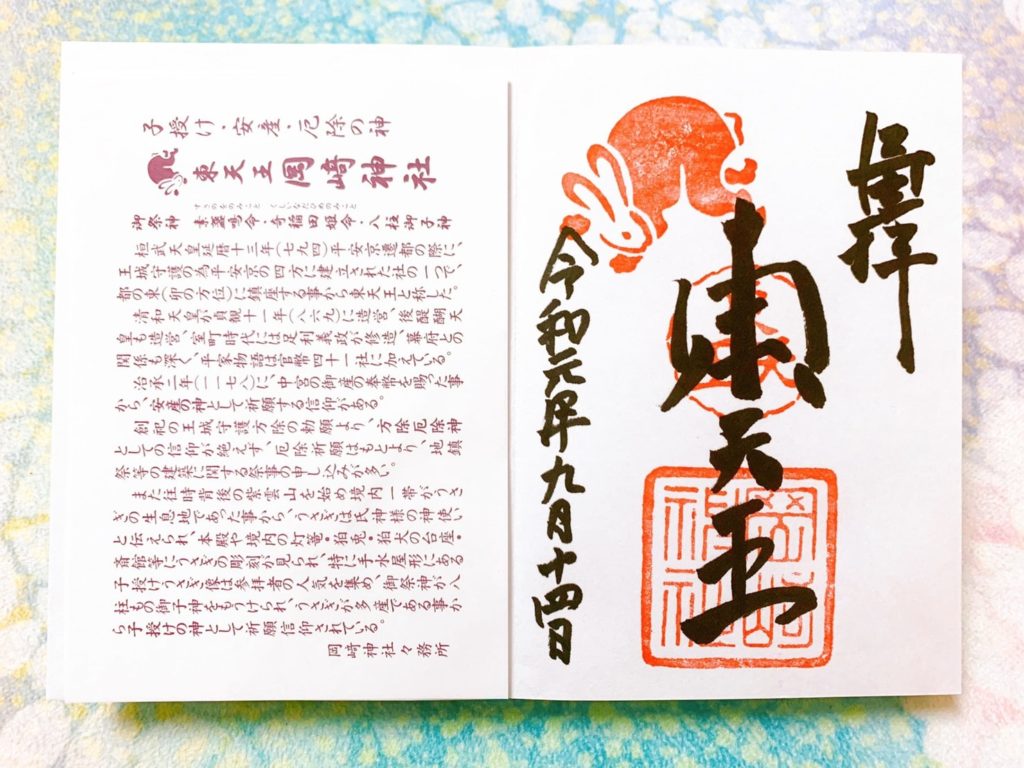 子授け・安産・厄除の神
東天王 岡﨑神社
すさのをのみこと くしいなだひめのみこと
御祭神 素盞鳴命・奇稲田姫命・八柱御子神
桓武天皇延暦十三年(七九四)平安京遷都の際に、
王城守護の為平安京の四方に建立された社の一で、
都の東(卯の方位)に鎮座する事から東天王と称した。
清和天皇が貞観十一年(八六九)に造営、後醍醐天
皇も造営、室町時代には足利義政が修造、幕府との
関係も深く、平家物語は官幣四十一社に加えている。
治承二年(一一七八)に、中宮の御産の奉幣を賜った事
から、安産の神として祈願する信仰がある。
創祀の王城守護方除の勅願より、方除厄除神
としての信仰が絶えず、厄除祈願はもとより、地鎮
祭等の建築に関する祭事の申し込みが多い。
また往時背後の紫雲山を始め境内一帯がうさ
ぎの生息地であった事から、うさぎは氏神様の神使い
と伝えられ、本殿や境内の灯篭・狛兎・狛犬の台座・
斎館等にうさぎの彫刻が見られ、特に手水屋形にある
子授けうさぎ像は参拝者の人気を集め、御祭神が八
柱もの御子神をもうけられ、うさぎが多産である事か
ら子授けの神として祈願信仰されている。
岡﨑神社々務所
奉拝
東天王
岡﨑神社
令和元年九月十四日